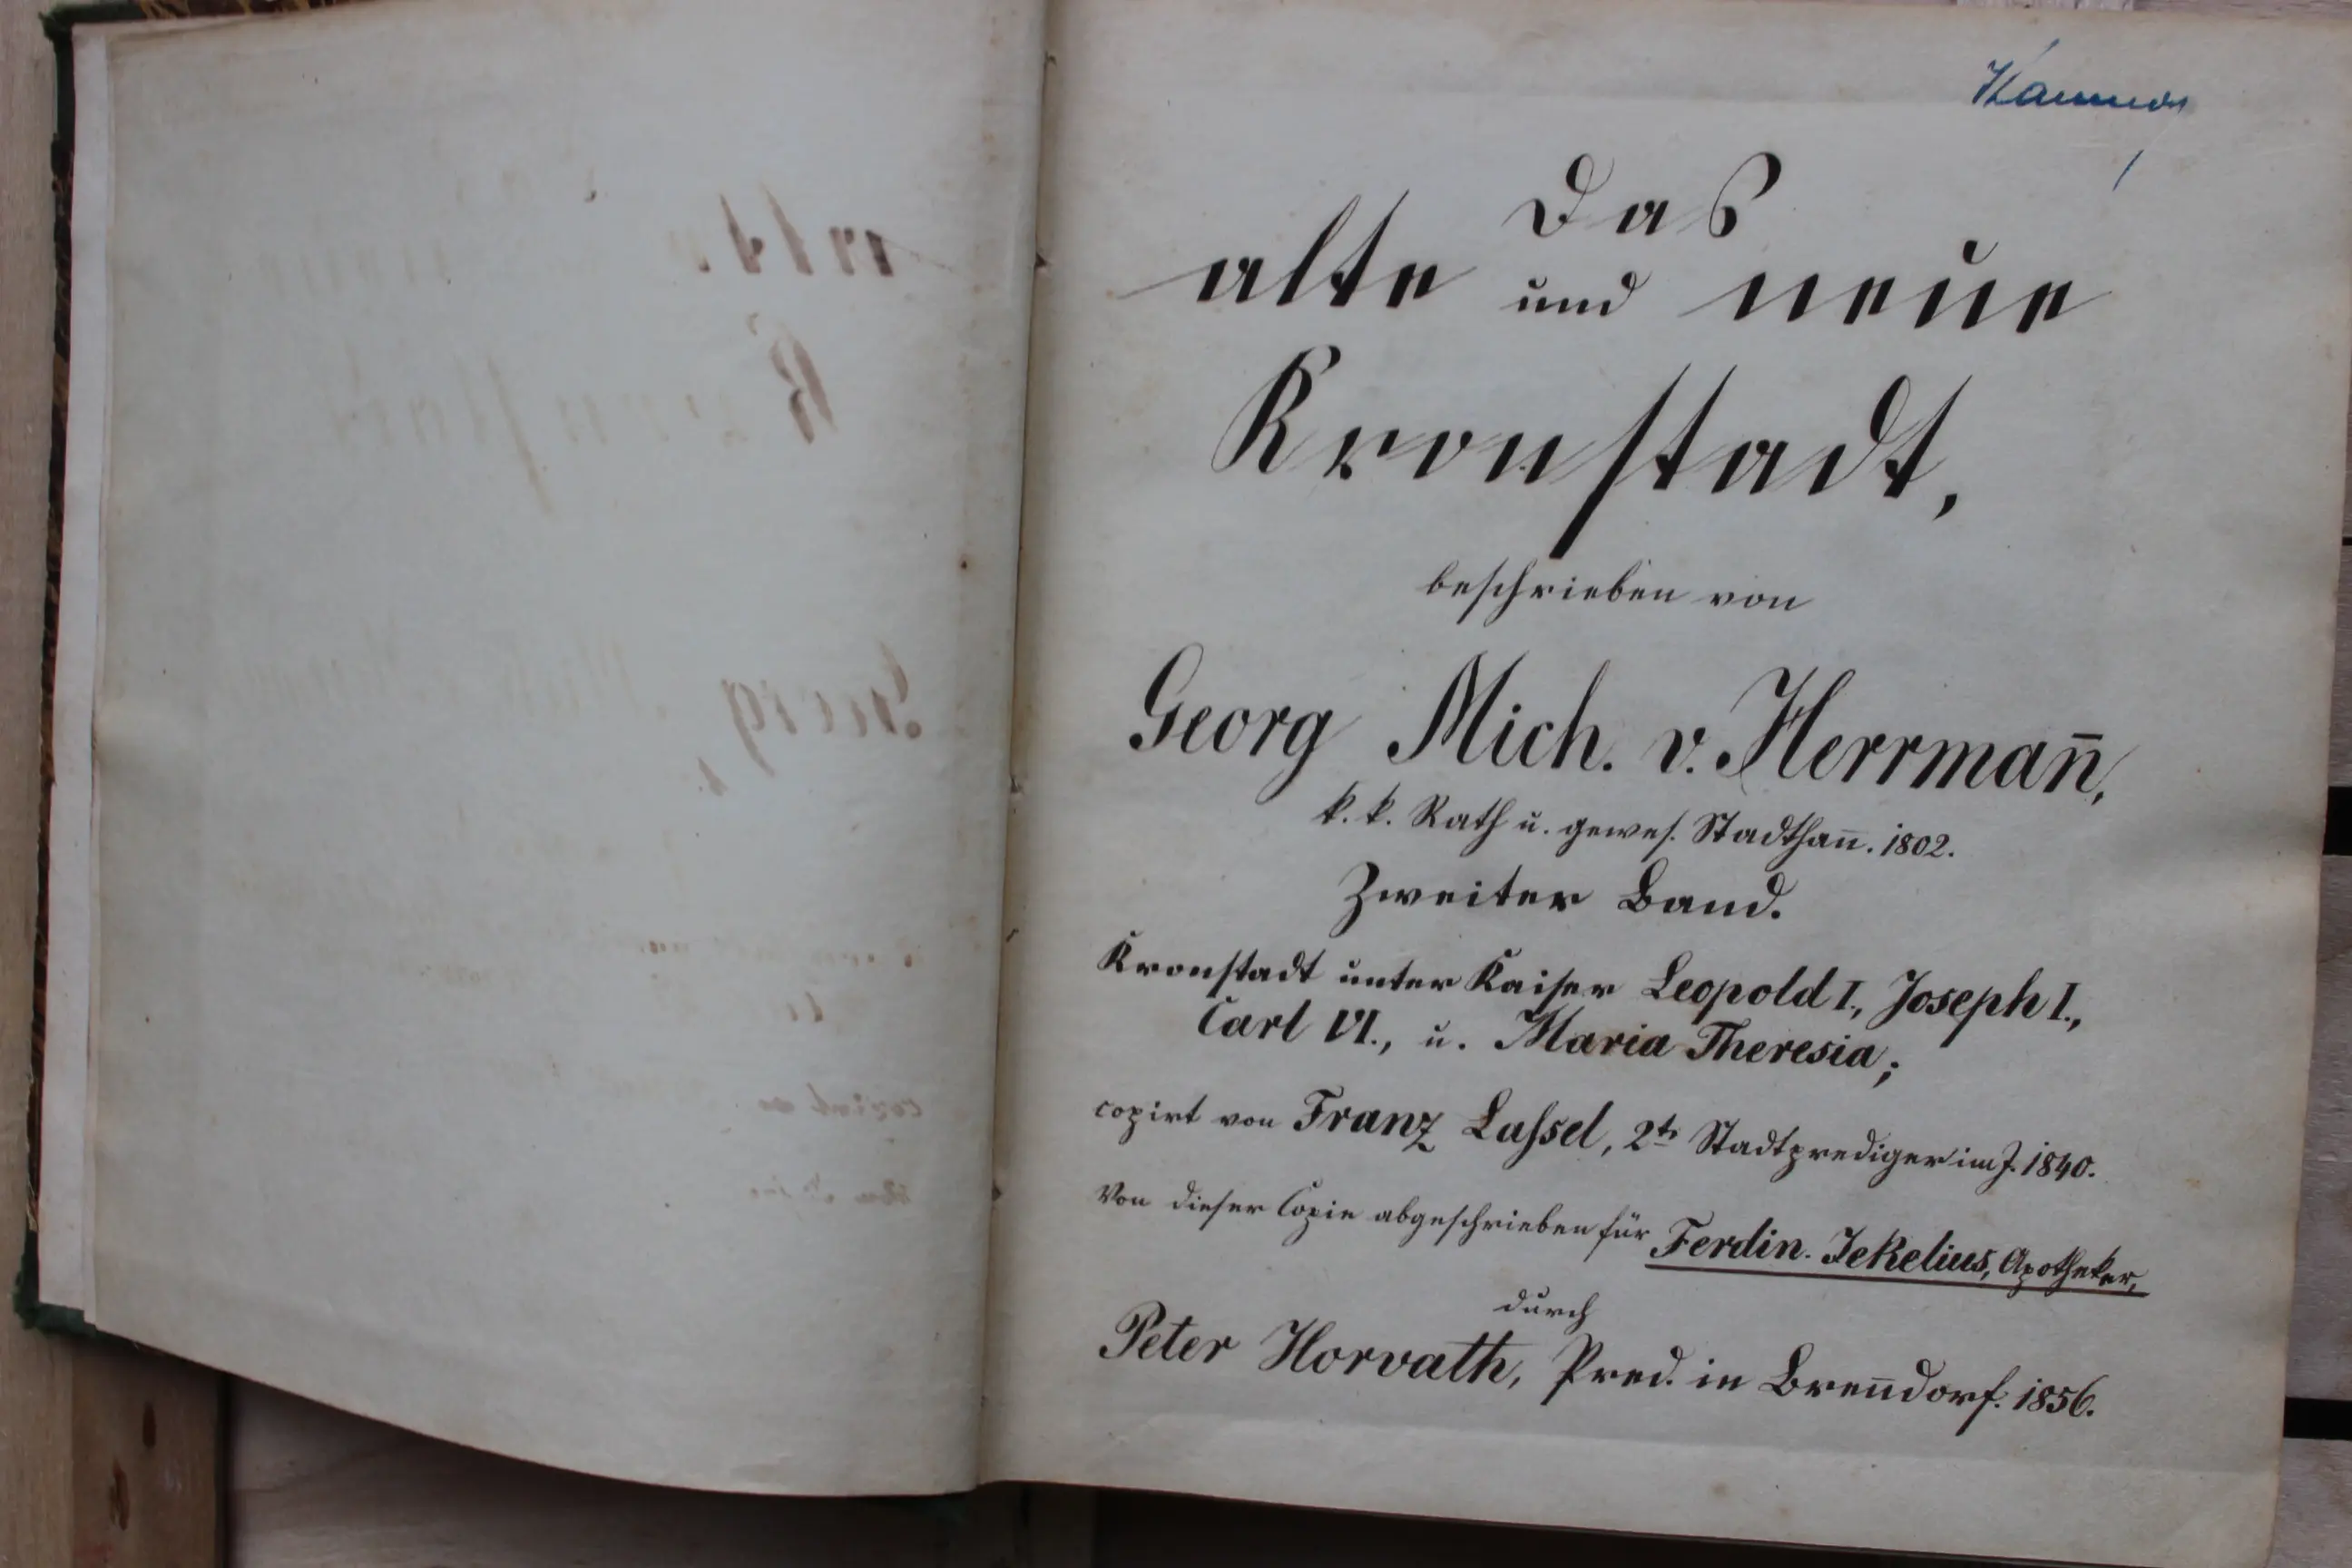 Das
alte und neue
Kronstadt,
beschrieben von
Georg Mich. v. Herrman̄,
k. k. Rath u. gewes. Stadthan̄. 1802.
Zweiter Band.
Kronstadt unter Kaiser Leopold I., Joseph I.,
Carl VI., u. Maria Theresia;
copirt von Franz Lassel, 2tr Stadtprediger im J. 1840.
Von dieser Copie abgeschrieben für Ferdin. Jekelius, Apotheker,
durch
Peter Horvath, Pred. in Bren̄dorf. 1856.